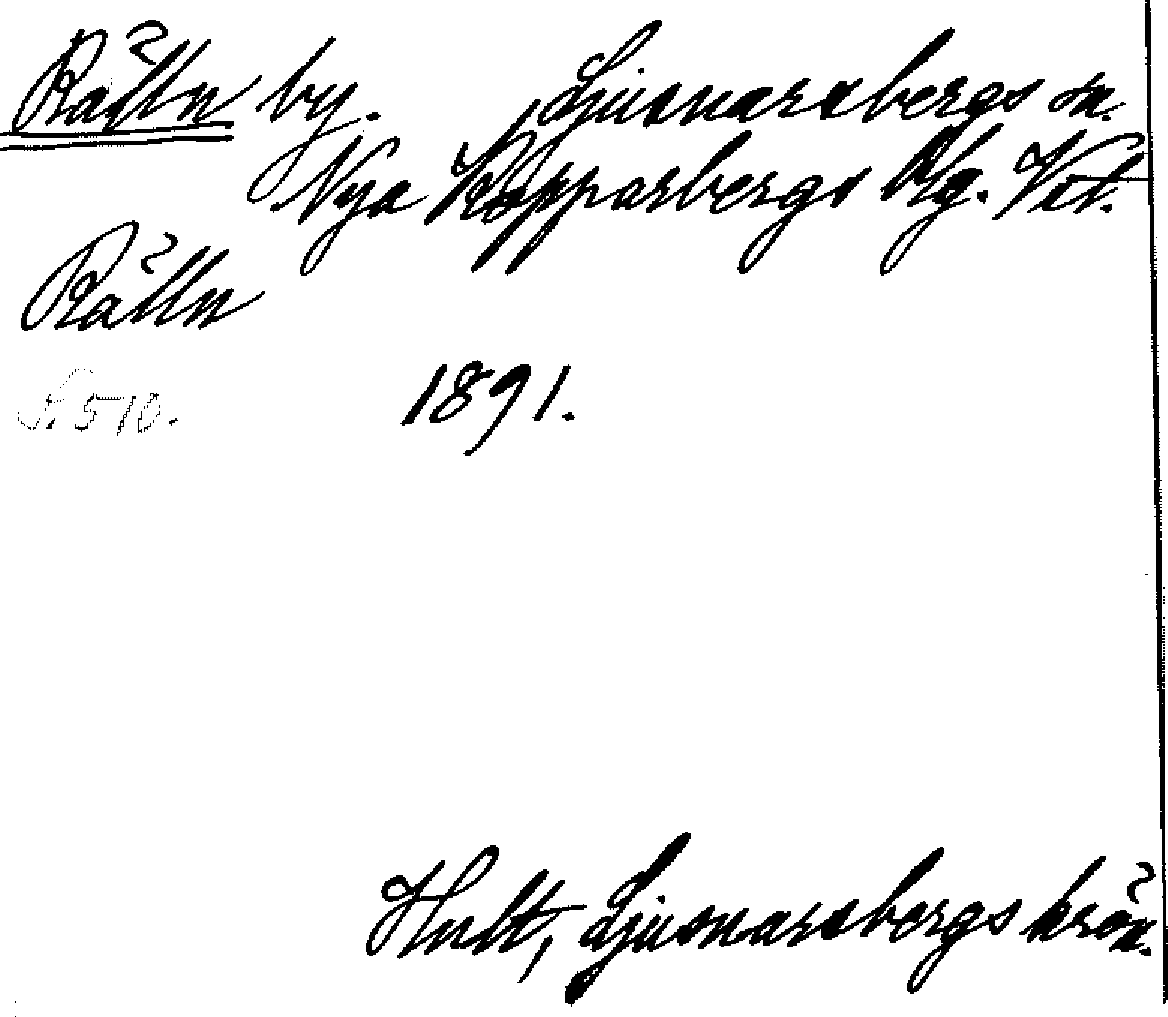 Rälln by. Ljusnarsbergs sn.
Nya Kopparbergs blg. Vstm.
Rälln
S. 510. 1891.
Hult, Ljusnarsbergs krön.